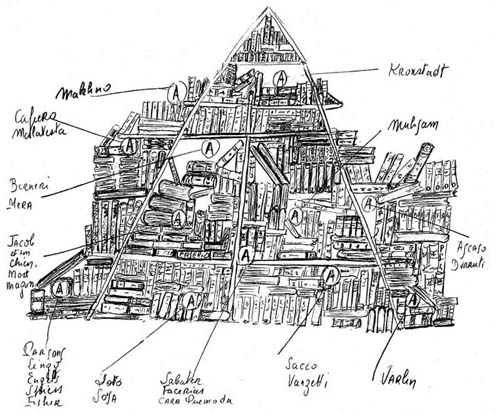 Kronstadt
A
Makhno
A
Cafiero
Malatesta
Muhsam
A
A
Berneri
Mera
A
A
A
Ascaso
Durruti
Jacob
et un
chien,
Most
Magon
A
A
A
A
A
Parsons
Lingg
Engel
Spies
Fisher
Soto
Sosa
Sabater
Facerias
Cara Quemada
Sacco
Vanzetti
Varlin